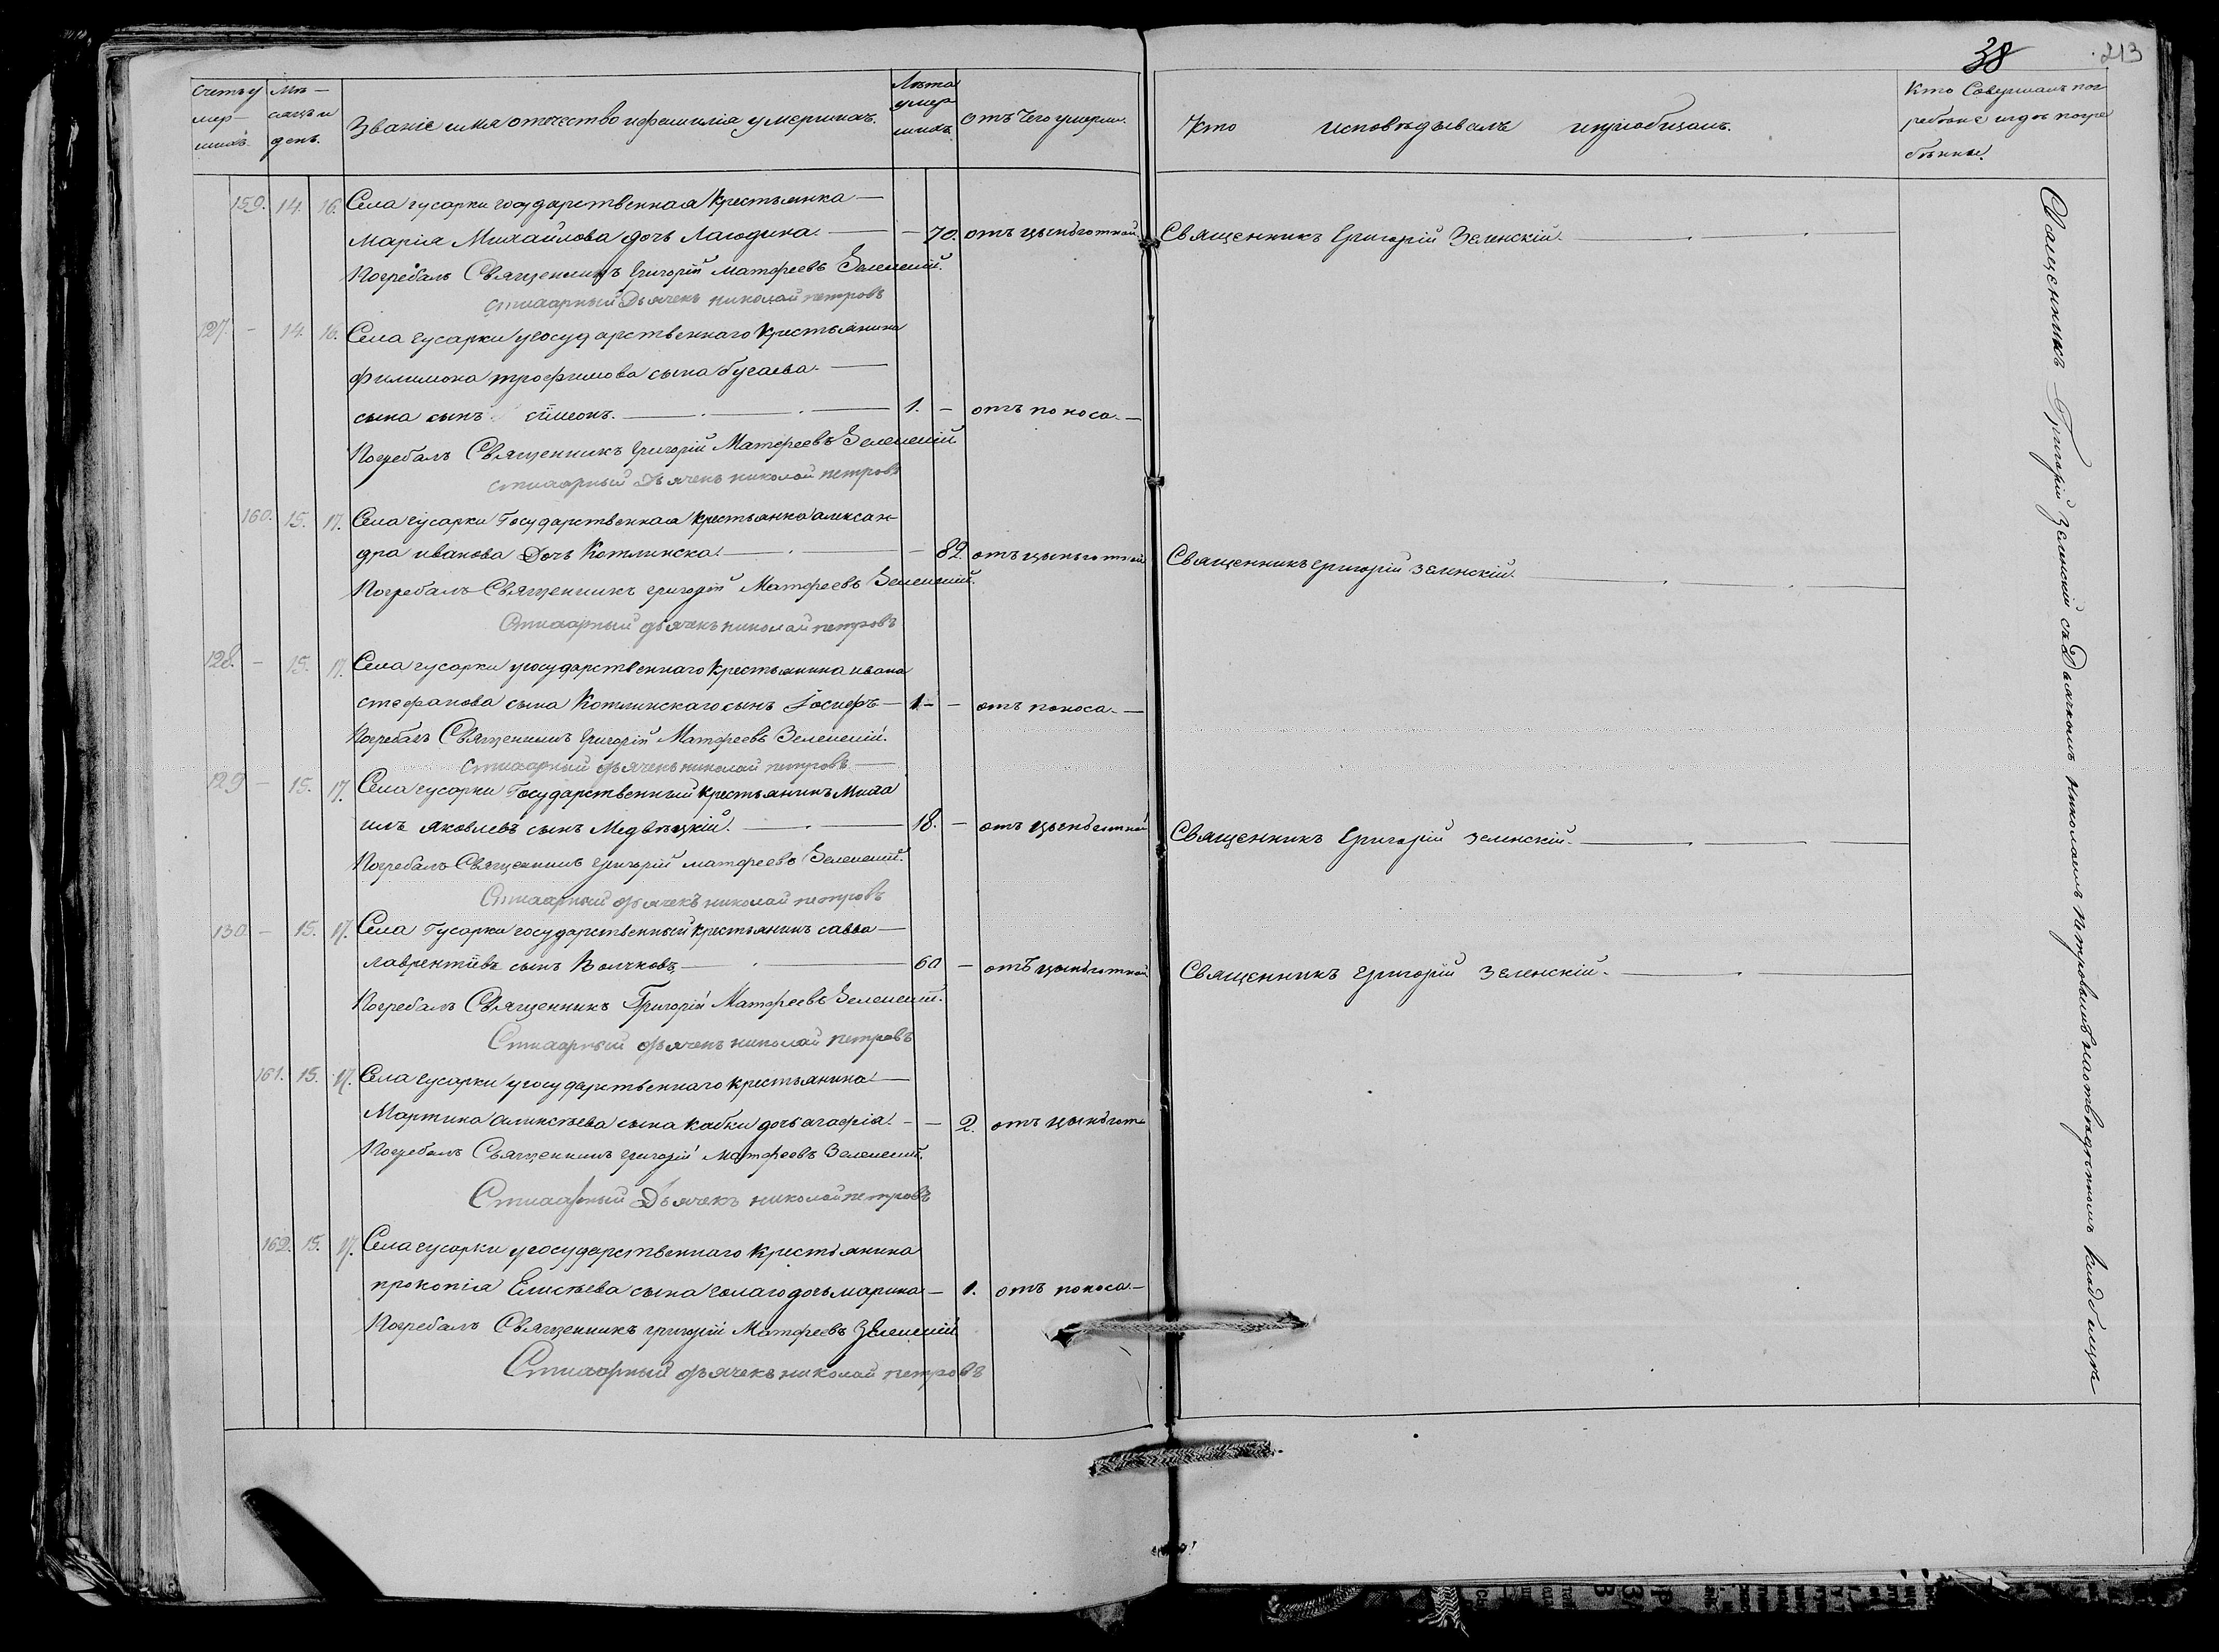 38
213
Счетъ у
мер-
шихъ.
Мѣ-
сяцъ и
день.
Званіе имя отечество и фамилія умершихъ.
Лѣта
умер
шихъ.
Отъ чего умерли.
Кто исповѣдывалъ и пріобщалъ.
Кто Совершалъ пог
ребеніе и гдѣ погре
бенны.
159. 14. 16. Села гусарки государственная крестьянка —
Марія Михайлова дочь Лагодина. — 70. отъ цынготной. Священникъ Григорій Зеленскій.
Погребалъ Священникъ Григорій Матфеевъ Зеленскій.
Стихарный Дьячекъ николай петровъ
127. — 14. 16. Села гусарки у государственнаго крестьянина
филимона трофимова сына бугаева. —
сына сынъ сѵмеонъ. — 1. — отъ поноса. —
Погребалъ Священникъ Григорій Матфеевъ Зеленскій
стихарный Дьячекъ николай петровъ
160. 15. 17. Села гусарки Государственная крестьянка алексан-
дра иванова Дочь Котлинска. — 82. отъ цынготной Священникъ Григорій Зеленскій.
Погребалъ Священникъ григорій Матфеевъ Зеленскій.
Стихарный дьячекъ николай петровъ
128. — 15. 17. Села гусарки у государственнаго крестьянина ивана
стефанова сына Котлинскаго сынъ Іосифъ — 1. — отъ поноса. —
Погребалъ Священникъ Григорій Матфеевъ Зеленскій.
Стихарный дьячекъ николай петровъ —
129 — 15. 17. Села гусарки Государственный крестьянинъ Миха
илъ яковлевъ сынъ Медвѣцкій. — 18. — отъ цынготной Священникъ Григорій Зеленскій.
Погребалъ Священникъ григорій матфеевъ Зеленскій.
Стихарный дьячекъ николай петровъ
130 — 15. 17. Села Гусарки государственный крестьянинъ савва —
лаврентіевъ сынъ Волчковъ — 60 — отъ цынготной Священникъ Григорій Зеленскій.
Погребалъ Священникъ Григорій Матфеевъ Зеленскій.
Стихарный дьячекъ николай петровъ
161. 15. 17. Села гусарки у государственнаго крестьянина —
Мартина сына кабки дочь агафія. — 2. отъ
Погребалъ Священникъ григорій Матфеевъ Зеленскій.
Стихарный Дьячекъ николай петровъ
162. 15. 17. Села гусарки у государственнаго крестьянина
прокопія Елисѣева сына голаго дочь марина — 1. отъ поноса —
Погребалъ Священникъ григорій Матфеевъ Зеленскій
Стихарный дьячекъ николай петровъ
Священникъ Григорій Зеленскій съ Дьячкомъ николаемъ Петровымъ на отведенномъ кладбищѣ